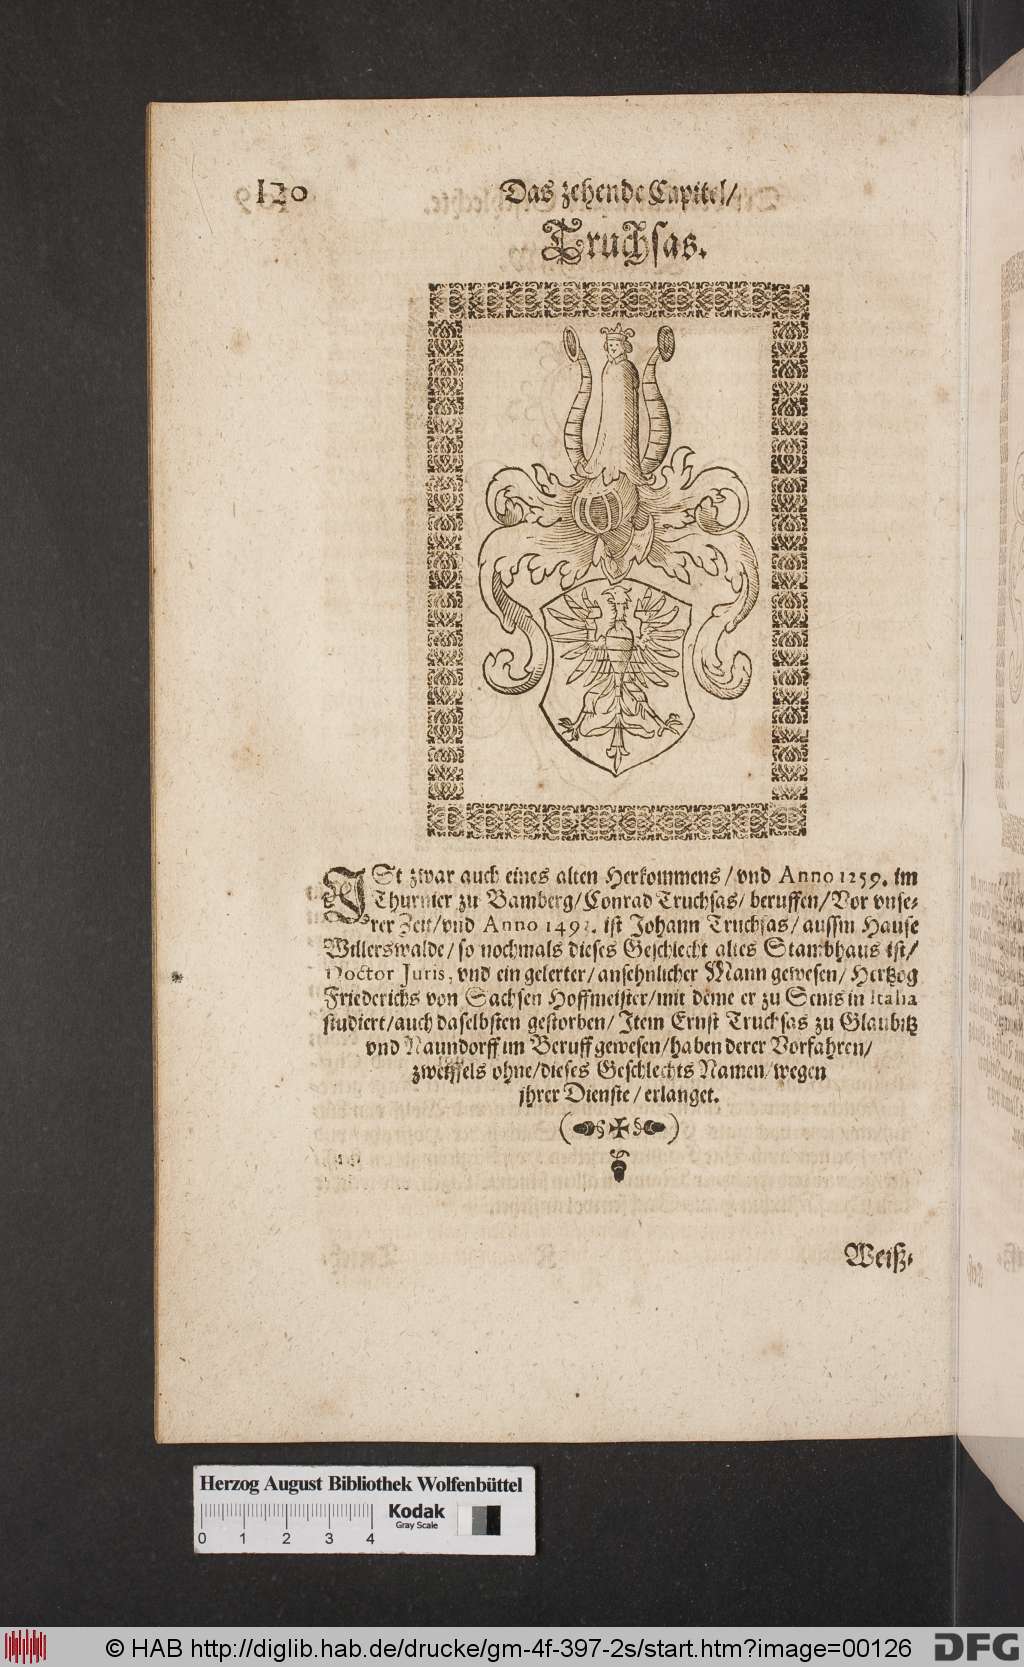 120
Das zehende Capitel/
Truchsas.
ISt zwar auch eines alten Herkommens/vnd Anno 1259. im
Thurnier zu Bamberg/Conrad Truchsas/beruffen/Vor vnse-
rer Zeit/vnd Anno 149 . ist Johann Truchsas/aussm Hause
Willerswalde/so nochmals dieses Geschlecht altes Stambhaus ist/
Doctor Juris, vnd ein gelerter/ansehnlicher Mann gewesen/Hertzog
Friederichs von Sachsen Hoffmeister/mit deme er zu Senis in Italia
studiert/auch daselbsten gestorben/Item Ernst Truchsas zu Glaubitz
vnd Naundorff im Beruff gewesen/haben derer Vorfahren/
zweiffels ohne/dieses Geschlechts Namen/wegen
jhrer Dienste/erlanget.
Weiß-
Herzog August Bibliothek Wolfenbüttel
Kodak
Gray Scale
0 1 2 3 4
© HAB http://diglib.hab.de/drucke/gm-4f-397-2s/start.htm?image=00126
DFG